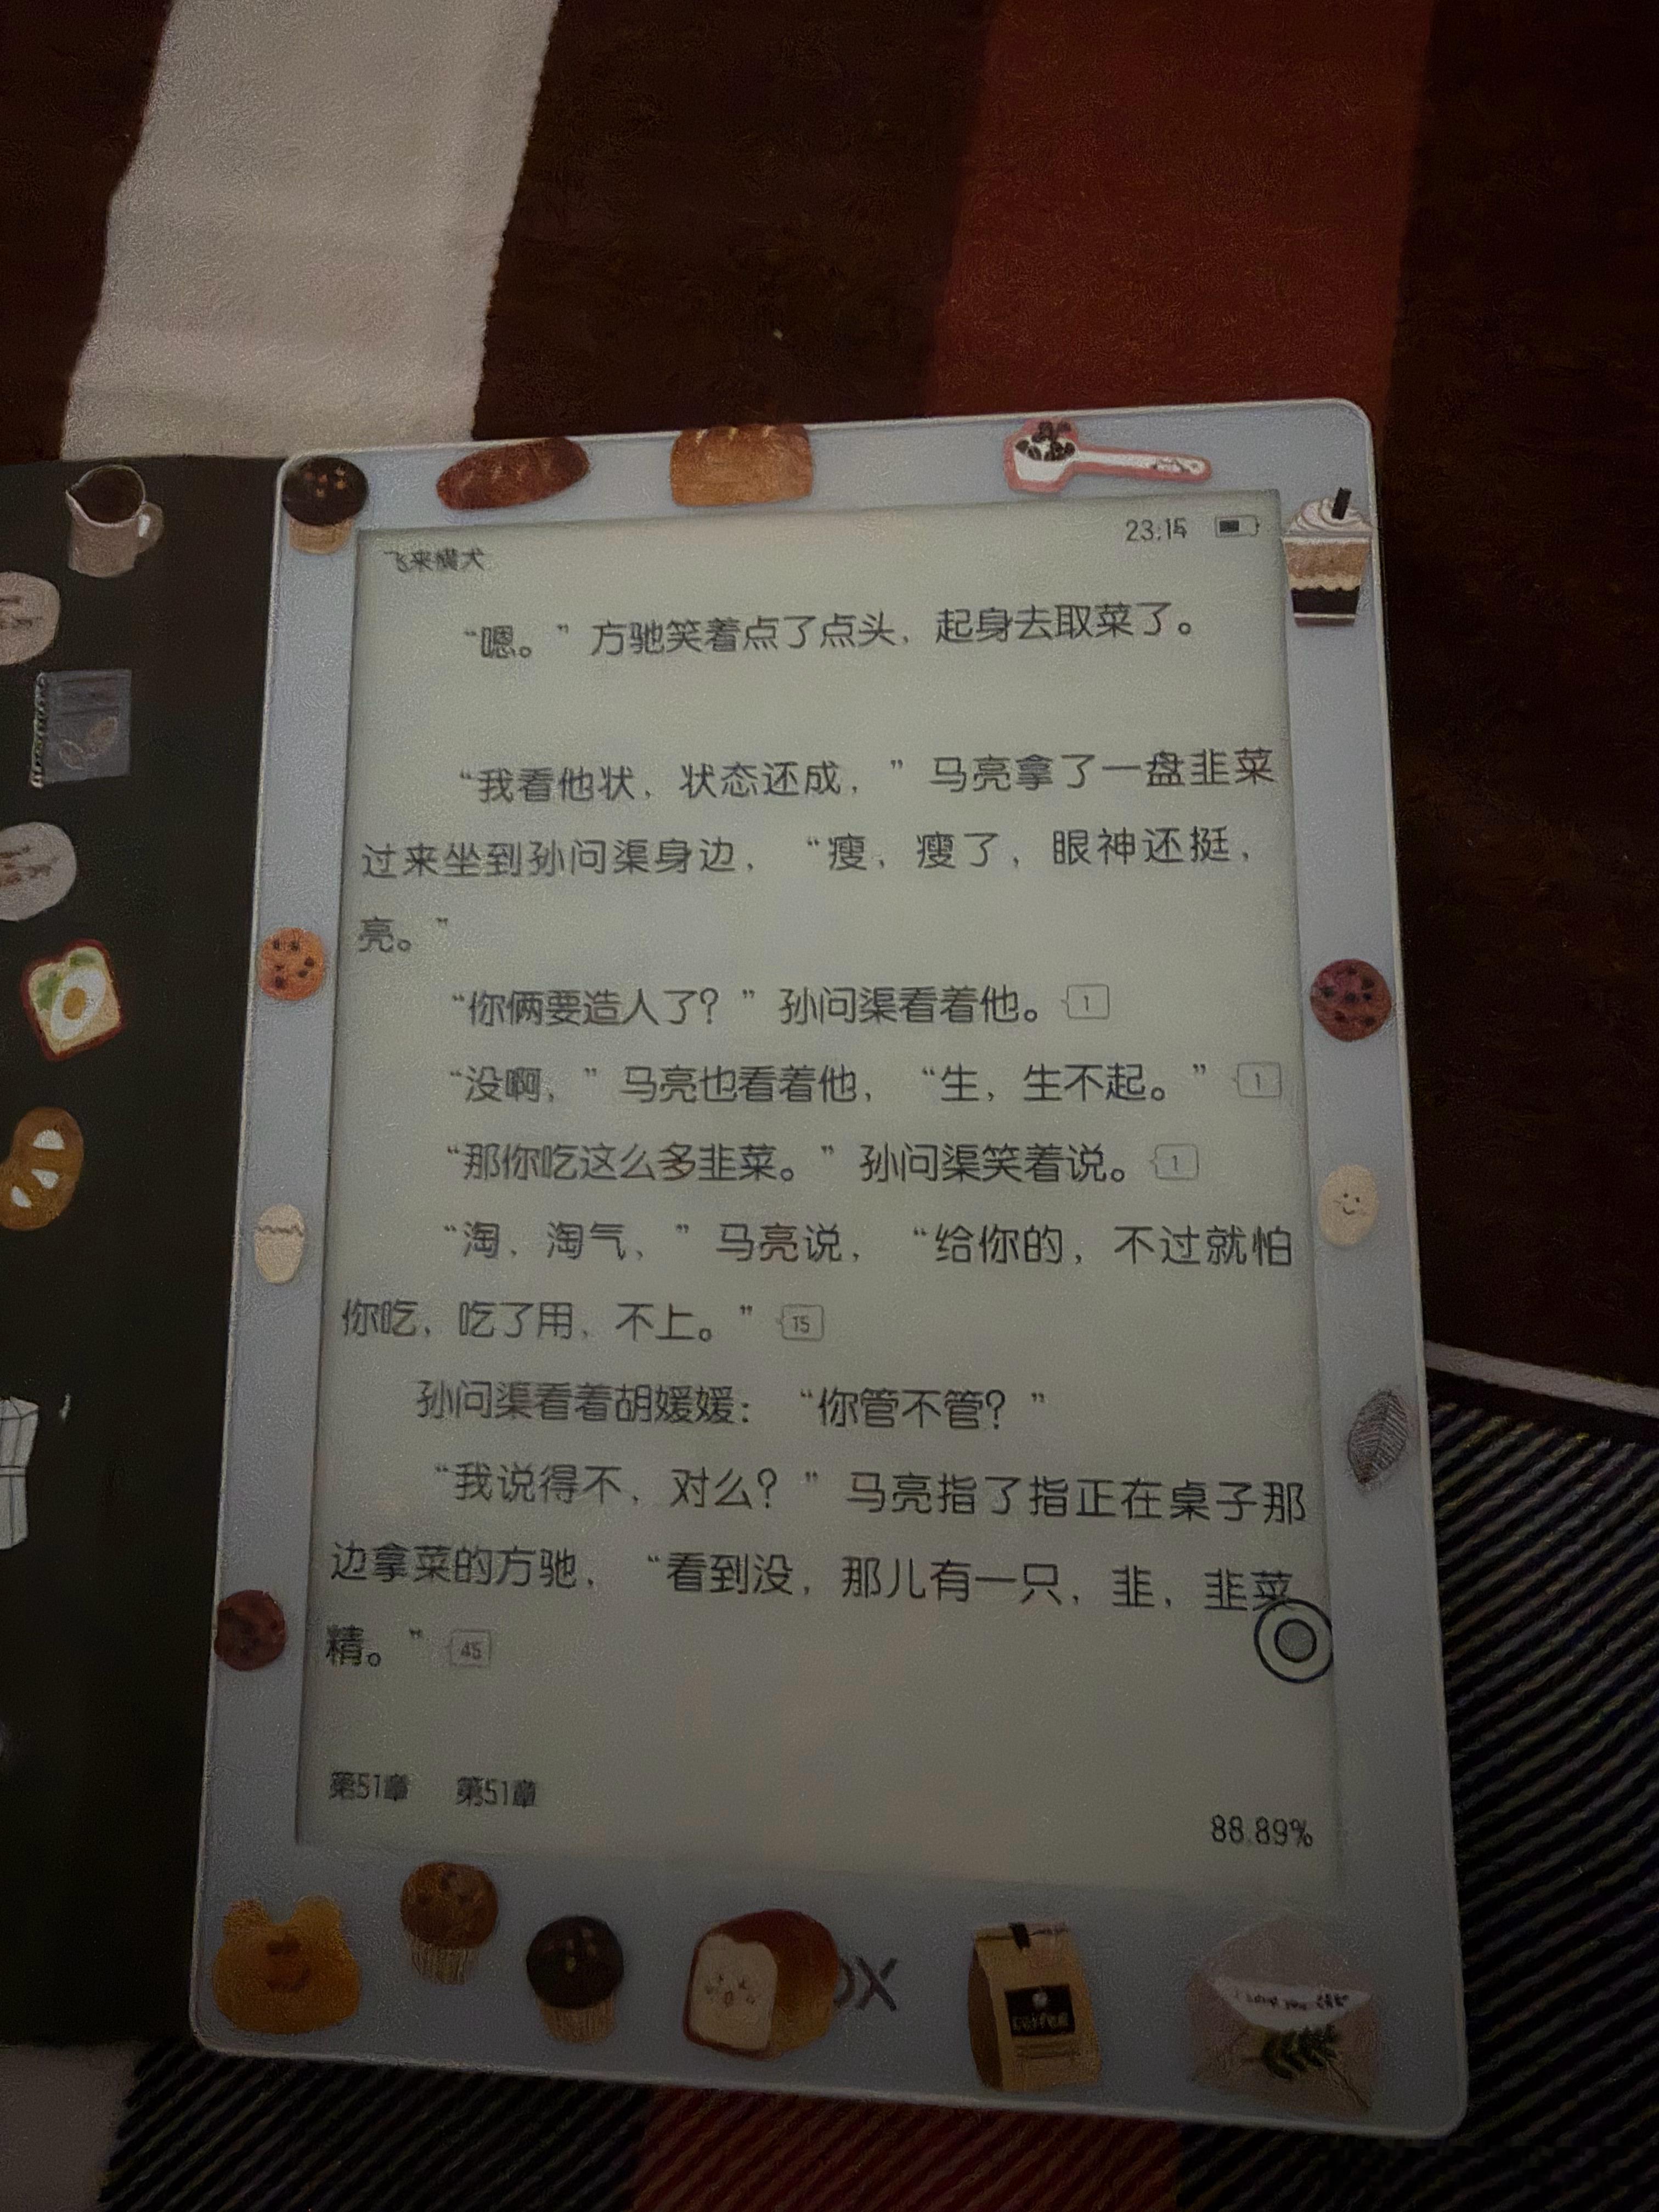 23:15
飞来横犬
“嗯。”方驰笑着点了点头，起身去取菜了。
“我看他状，状态还成，”马亮拿了一盘韭菜
过来坐到孙问渠身边，“瘦，瘦了，眼神还挺，
亮。”
“你俩要造人了？”孙问渠看着他。 1
“没啊，”马亮也看着他，“生，生不起。” 1
“那你吃这么多韭菜。”孙问渠笑着说。 1
“淘，淘气，”马亮说，“给你的，不过就怕
你吃，吃了用，不上。” 15
孙问渠看着胡媛媛：“你管不管？”
“我说得不，对么？”马亮指了指正在桌子那
边拿菜的方驰，“看到没，那儿有一只，韭，韭菜
精。” 45
第51章 第51章
88.89%
OX
coffee
I love you